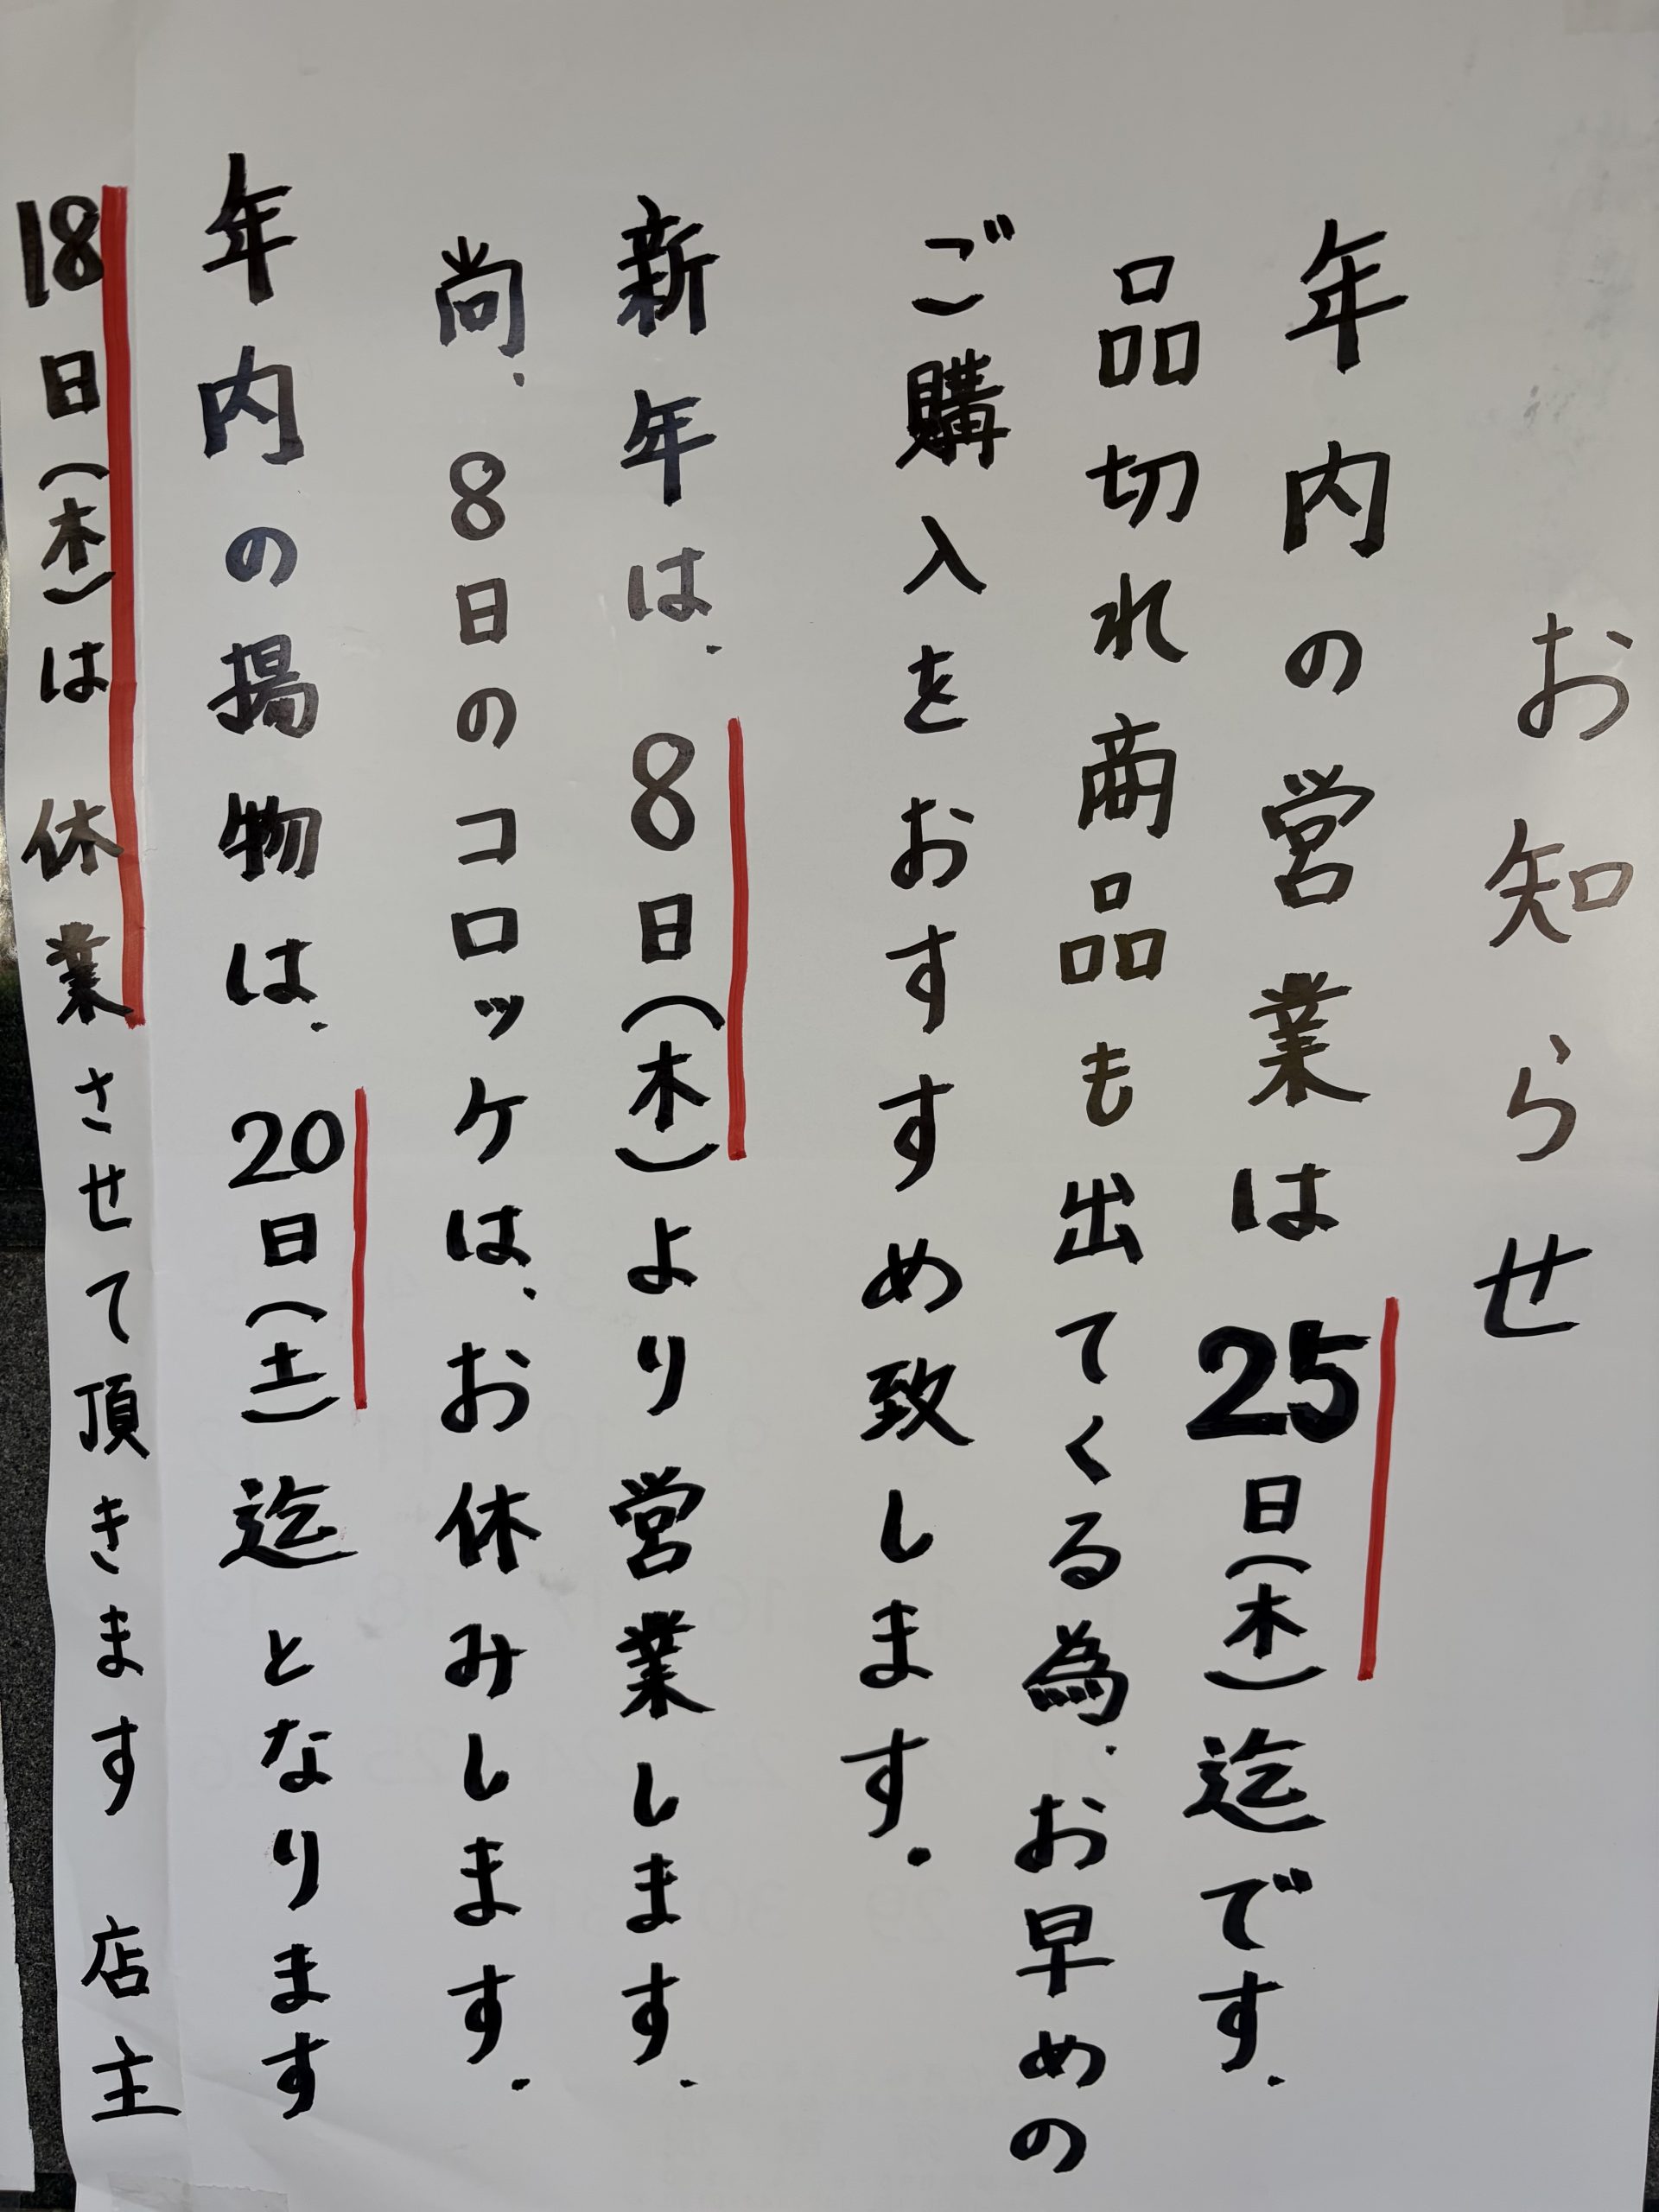 お知らせ
年内の営業は25日(木)迄です.
品切れ商品も出てくる為.お早めの
ご購入をおすすめ致します.
新年は.8日(木)より営業します.
尚.8日のコロッケは.お休みします.
年内の揚物は.20日(土)迄となります
18日(木)は休業させて頂きます 店主